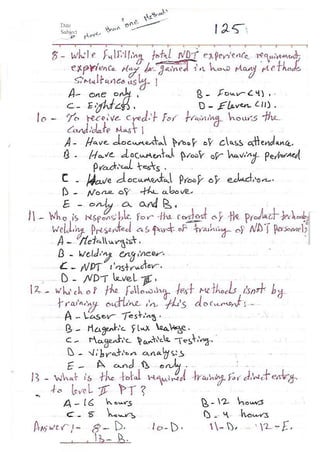 Date
Subject
More than "one Methods"
125
8 - While fulfilling total NDT experience requirment,
experience May be gained in how Many Methods
Simultaneously?
A- one only. B - Four (4).
C - Eight (8). D - Eleven (11).
10 - To receive credit For training hours the
Candidate Must:
A - Have documental Proof of class attendance.
B - Have documental Proof of having Performed
Practical tests.
C - Have documental Proof of eduction.
D - None of the above.
E - only A and B.
11 - Who is responsible For the contest of the product technology
Welding Presented as part of training of NDT Personnel?
A - Metallurgist.
B - Welding engineer.
C - NDT instructor.
D - NDT level III.
12 - Which of the Following test Methods is not by
training outline in this document:-
A - Laser Testing.
B - Magentic Flux Leakage.
C - Magentic Particle Testing.
D - Vibration analysis
E - A and B only.
13 - What is the total required training For direct entry
to level II PT?
A - 16 hours B - 12 hours
C - 8 hours D - 4 hours
Answer:- 8 - D. 10 - D. 11 - D. 12 - E.
13 - B.